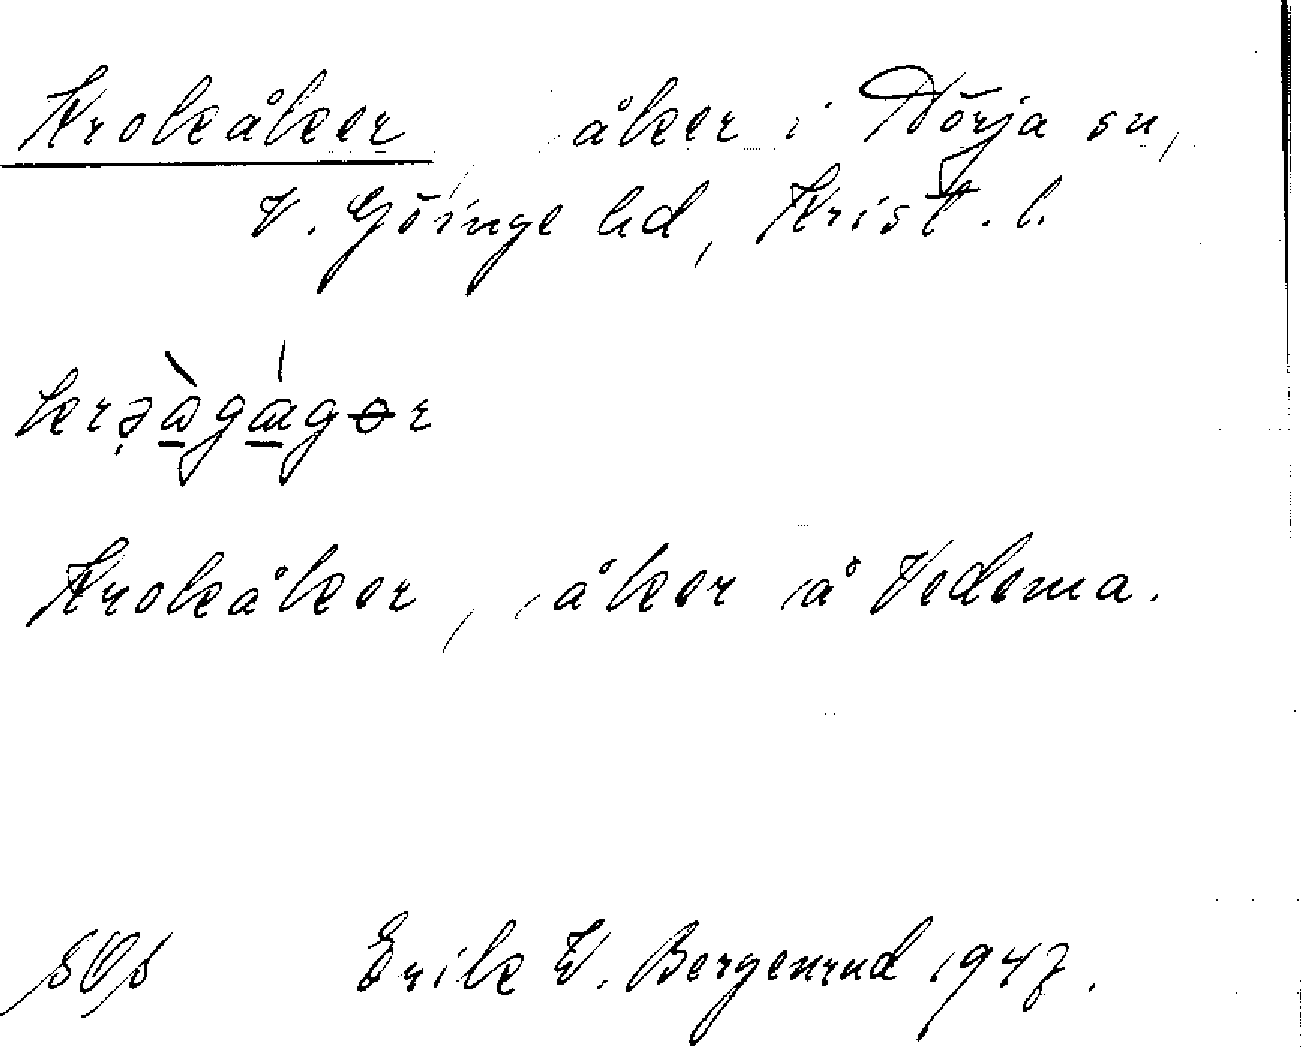 Krokåker, åker i Nörja sn,
V. Göinge hd, Krist. l.
Krokåker, åker å Vedema.
Erik W. Bergenrud 1947.